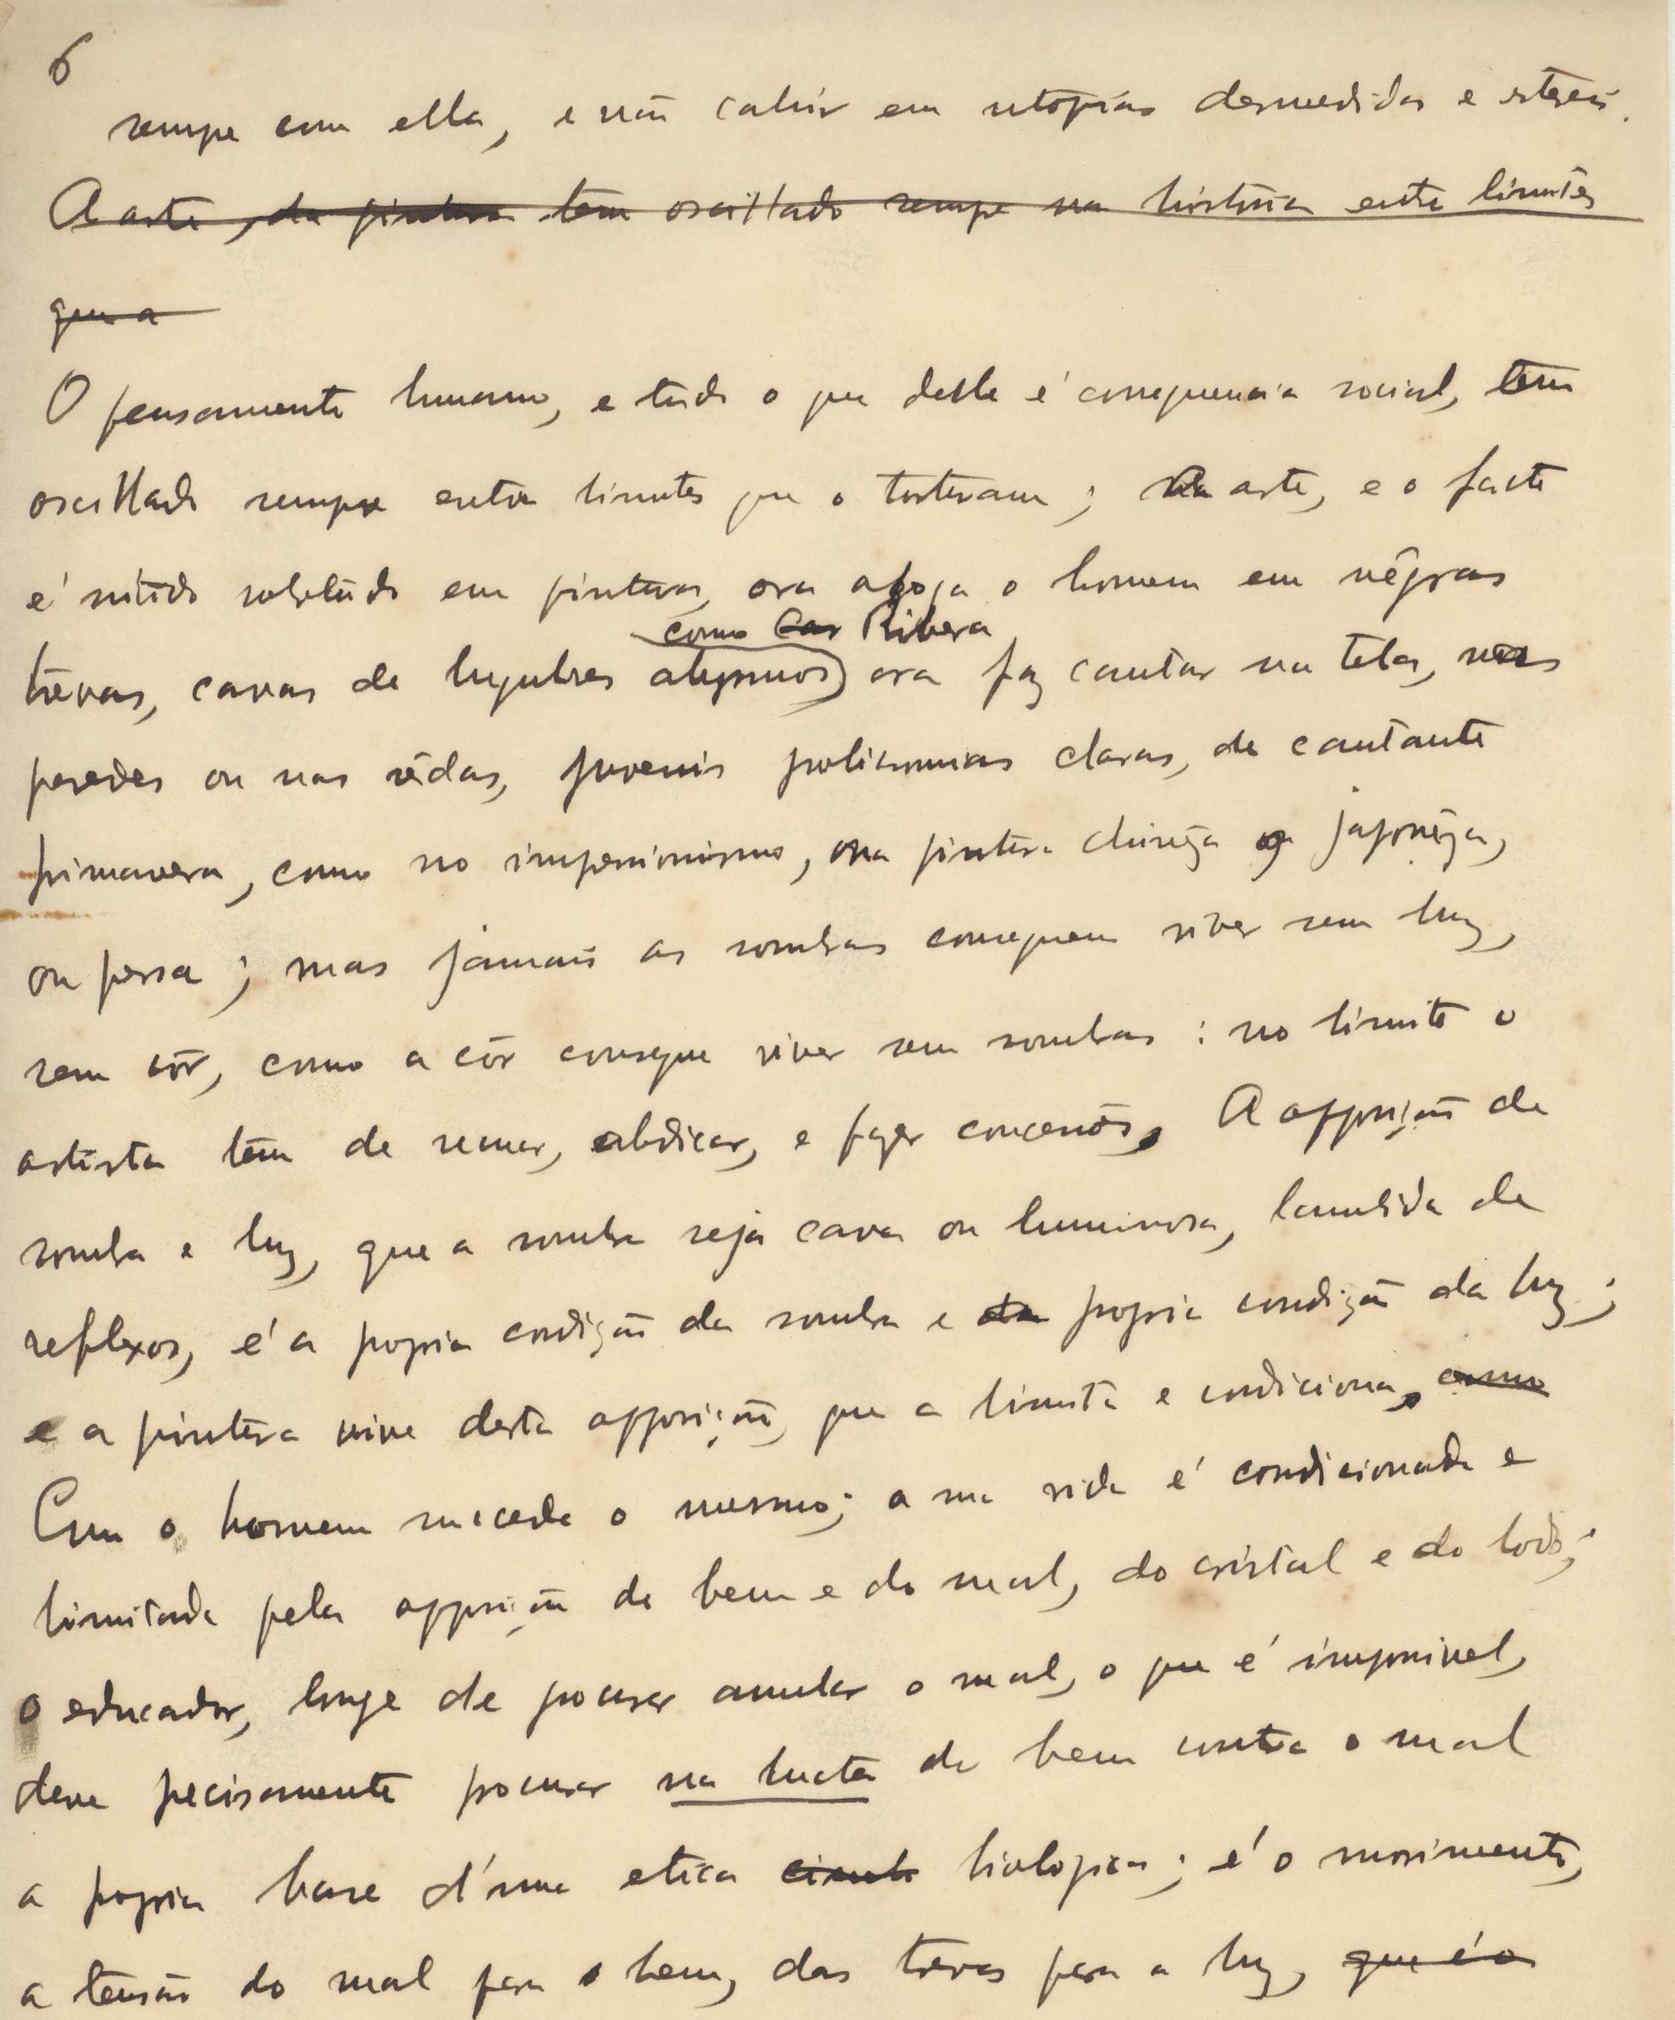 6
sempre com ella, e não cahir em utopias desmedidas e estereis.
A arte, da pintura tem oscillado sempre na história entre limites
que a
O pensamento humano, e tudo o que delle é consequencia social, tem
oscillado sempre entre limites que o torturam; a arte, e o facto
é nitido sobretudo em pintura, ora afoga o homem em négras
como Ribera
trevas, cavas de lugubres abysmos, ora faz cantar na tela, nas
paredes ou nas sêdas, juvenis policromias claras, de cantante
primavera, como no impressionismo, na pintura chinêza ou japonêza,
ou persa; mas jamais as sombras conseguem viver sem luz,
sem côr, como a côr consegue viver sem sombras: no limite o
artista tem de ceder, abdicar, e fazer concessões. A opposição de
sombra e luz, que a sombra seja cava ou luminosa, lambida de
reflexos, é a propria condição da sombra e da propria condição da luz;
e a pintura vive desta opposição, que a limita e condiciona, como
Com o homem succede o mesmo; a sua vida é condicionada e
limitada pela opposição do bem e do mal, do cristal e do lodo;
o educador, longe de procurar annular o mal, o que é impossivel,
deve precisamente procurar na lucta do bem contra o mal
a propria base d'uma etica biologica; é o movimento,
a tensão do mal para o bem, das trevas para a luz, que é o